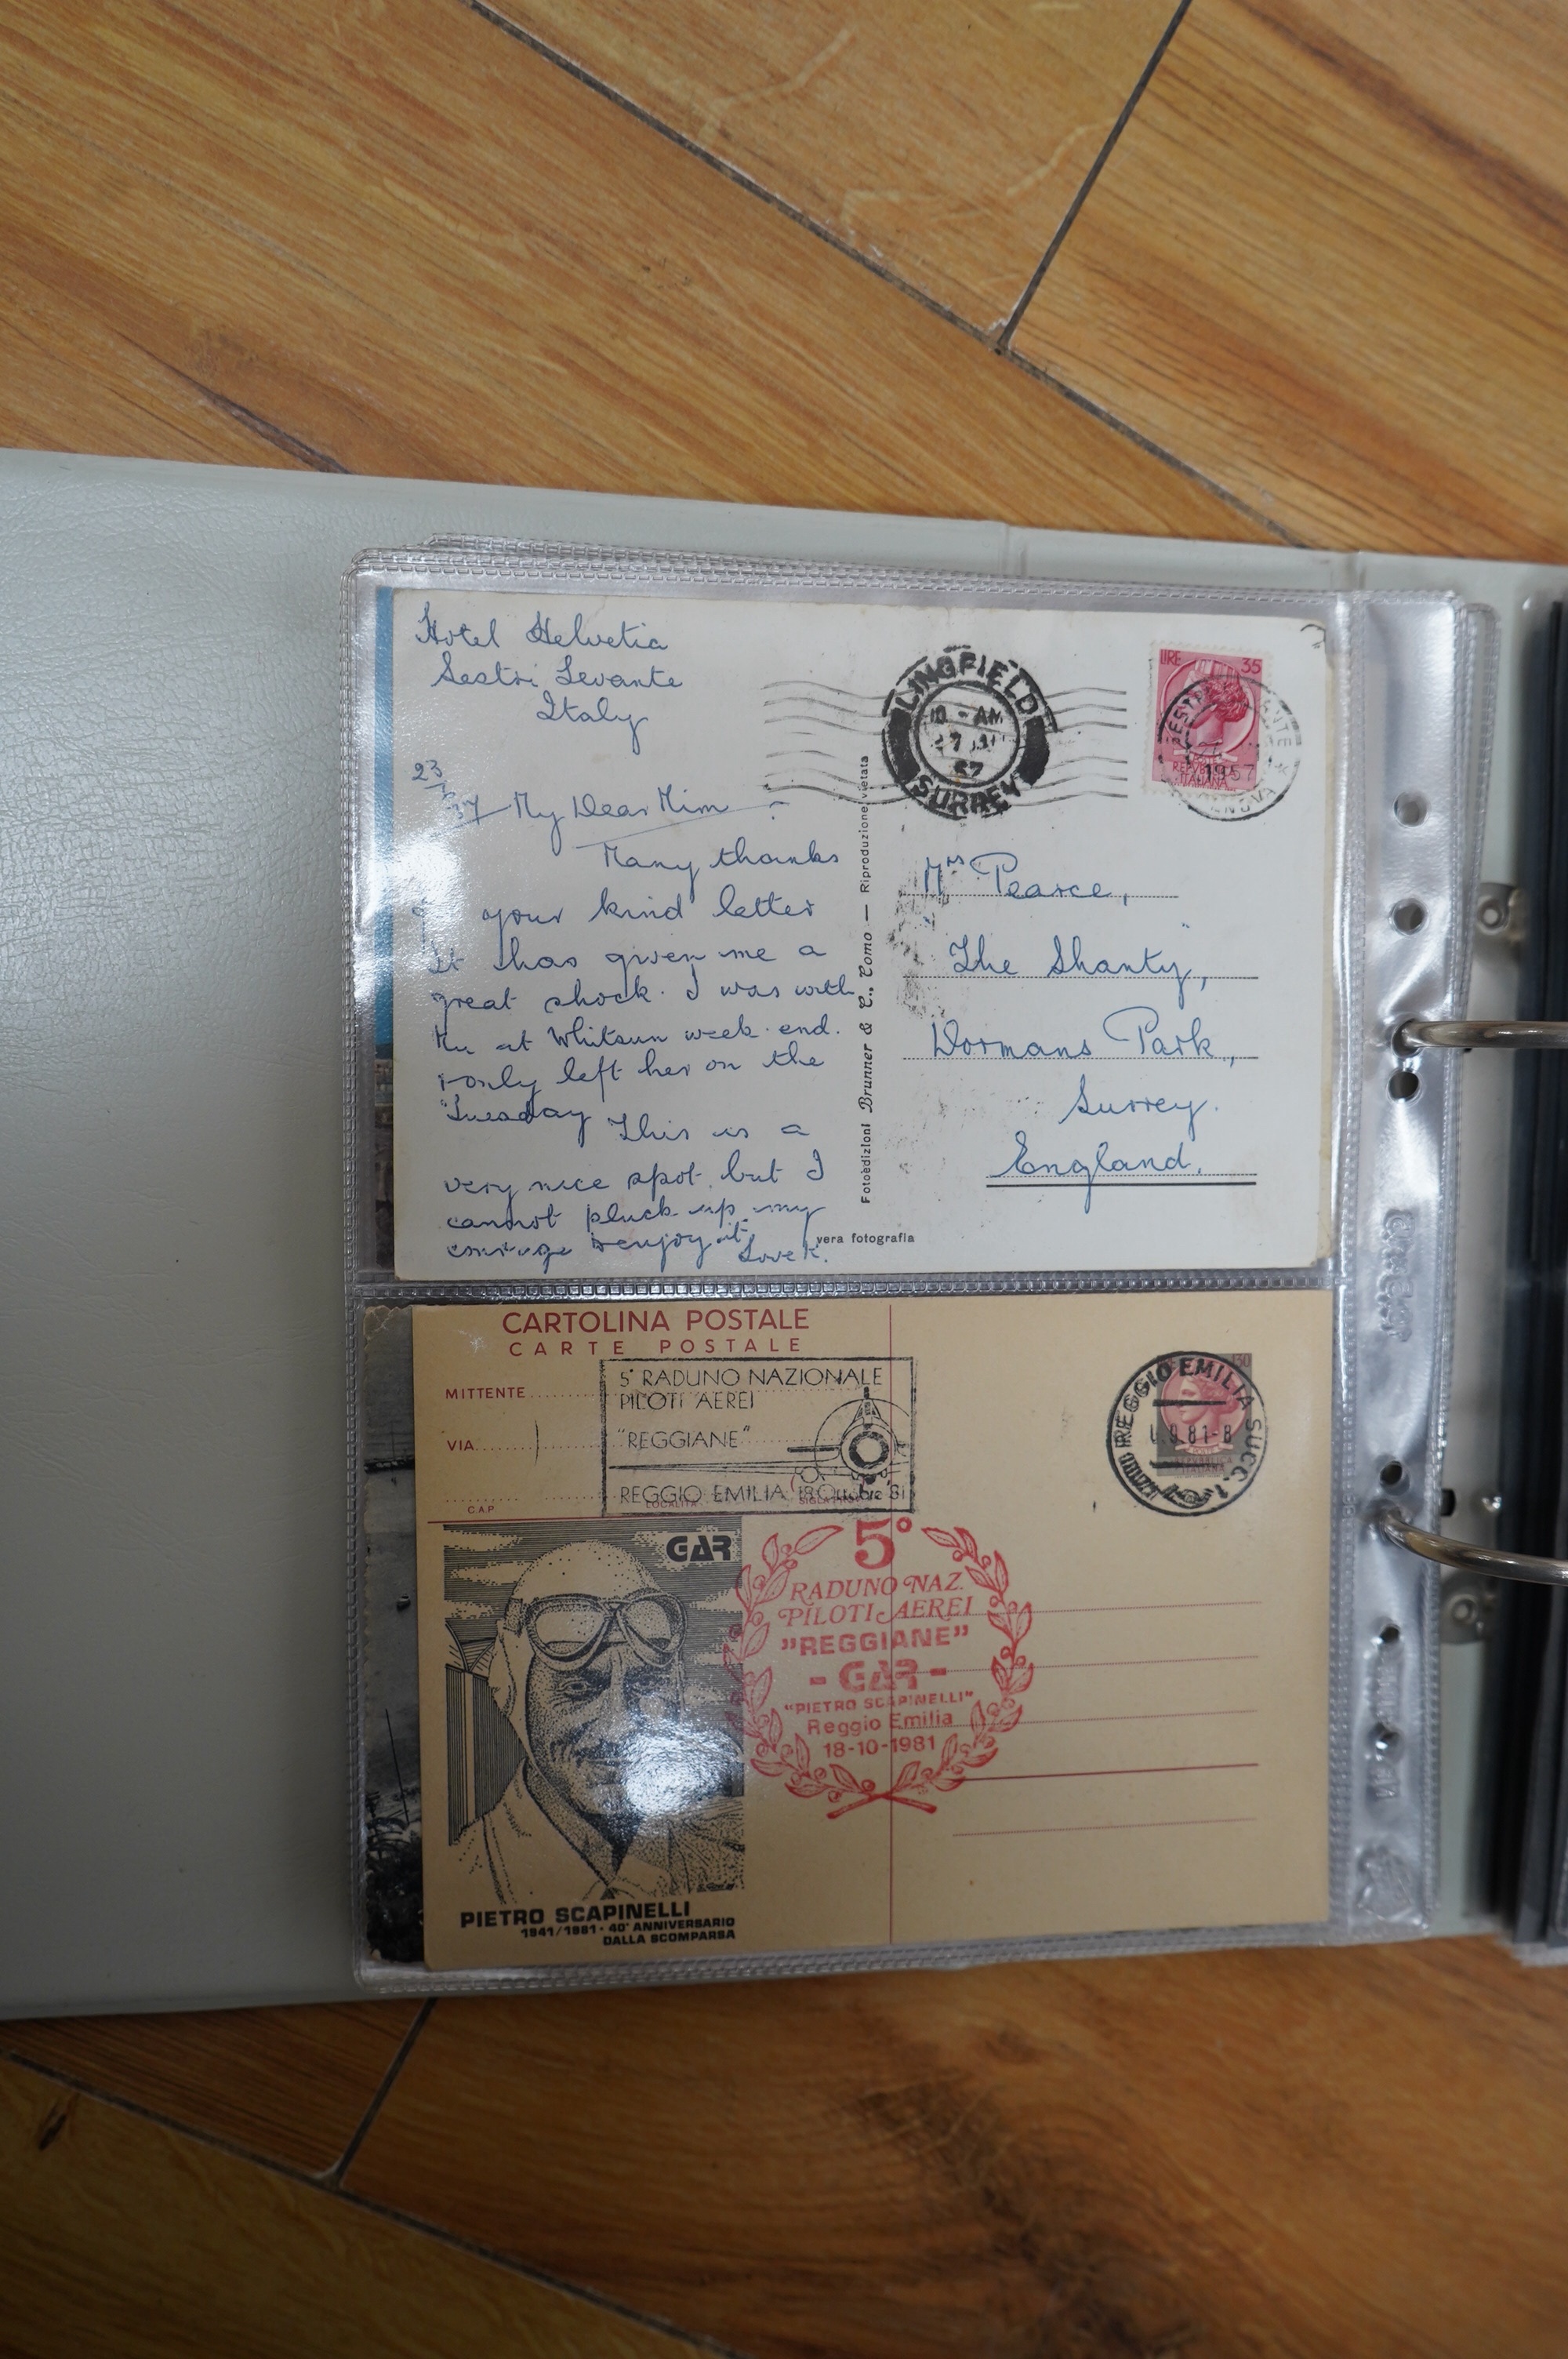 Hotel Helvetia
Sestri Levante
Italy
23
57 My Dear Mim
Many thanks
your kind letter
It has given me a
great shock. I was with
at Whitsun week-end.
only left her on the
Tuesday This is a
very nice spot but I
cannot pluck up my
courage to enjoy it.
Love K.
LINGFIELD
10 - AM
57
SURREY
LIRE 35
1957
Fotoedizioni Brunner & C., Como — Riproduzione vietata
vera fotografia
Mrs Pearce,
The Shanty,
Dormans Park,
Surrey.
England.
CARTOLINA POSTALE
CARTE POSTALE
MITTENTE
VIA
CAP
LOCALITÀ
5° RADUNO NAZIONALE
PILOTI AEREI
"REGGIANE"
REGGIO EMILIA 18 Ottobre '81
REGGIO EMILIA SUCC. 1
GAR
5°
RADUNO NAZ.
PILOTI AEREI
"REGGIANE"
- GAR -
"PIETRO SCAPINELLI"
Reggio Emilia
18-10-1981
PIETRO SCAPINELLI
1941/1981 · 40° ANNIVERSARIO
DALLA SCOMPARSA